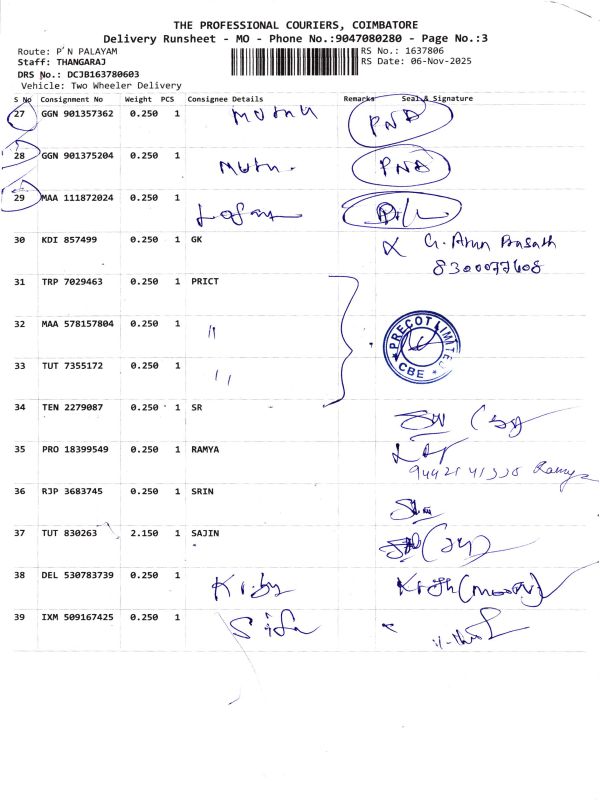 THE PROFESSIONAL COURIERS, COIMBATORE
Delivery Runsheet - MO - Phone No.:9047080280 - Page No.:3
Route: P N PALAYAM RS No.: 1637806
Staff: THANGARAJ RS Date: 06-Nov-2025
DRS No.: DCJB163780603
Vehicle: Two Wheeler Delivery
S No Consignment No Weight PCS Consignee Details Remarks Seal & Signature
27 GGN 901357362 0.250 1 PND
28 GGN 901375204 0.250 1 Mutu. PND
29 MAA 111872024 0.250 1
30 KDI 857499 0.250 1 GK G. Arun Prasath
8300077608
31 TRP 7029463 0.250 1 PRICT
32 MAA 578157804 0.250 1 "
PRECOT LIMITED
CBE
33 TUT 7355172 0.250 1 "
34 TEN 2279087 0.250 1 SR
35 PRO 18399549 0.250 1 RAMYA
Ramya
36 RJP 3683745 0.250 1 SRIN
37 TUT 830263 2.150 1 SAJIN
38 DEL 530783739 0.250 1
39 IXM 509167425 0.250 1